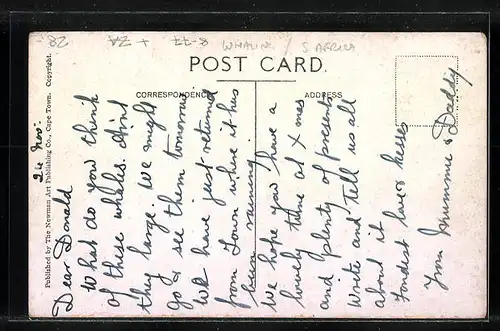 WHALING / S AFRICA
POST CARD.
CORRESPONDENCE
ADDRESS
Published by The Newman Art Publishing Co., Cape Town. Copyright.
24 Nov.
Dear Donald
What do you think
of these whales. Aint
they large. We might
go & see them tomorrow
We have just returned
from Town where it has
been raining.
We hope you have a
lovely time at Xmas
and plenty of presents
write and tell us all
about it
Fondest love & kisses
from Mummie & Daddy